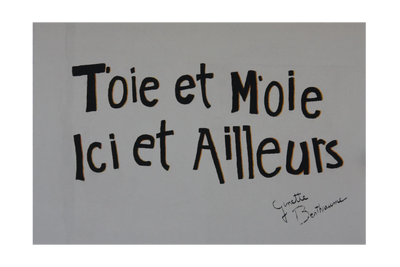 T'oie et M'oie
Ici et Ailleurs
Ginette
Berthiaume